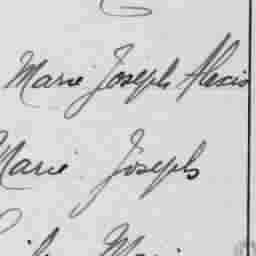 Marie Joseph Alexis
Marie Joseph